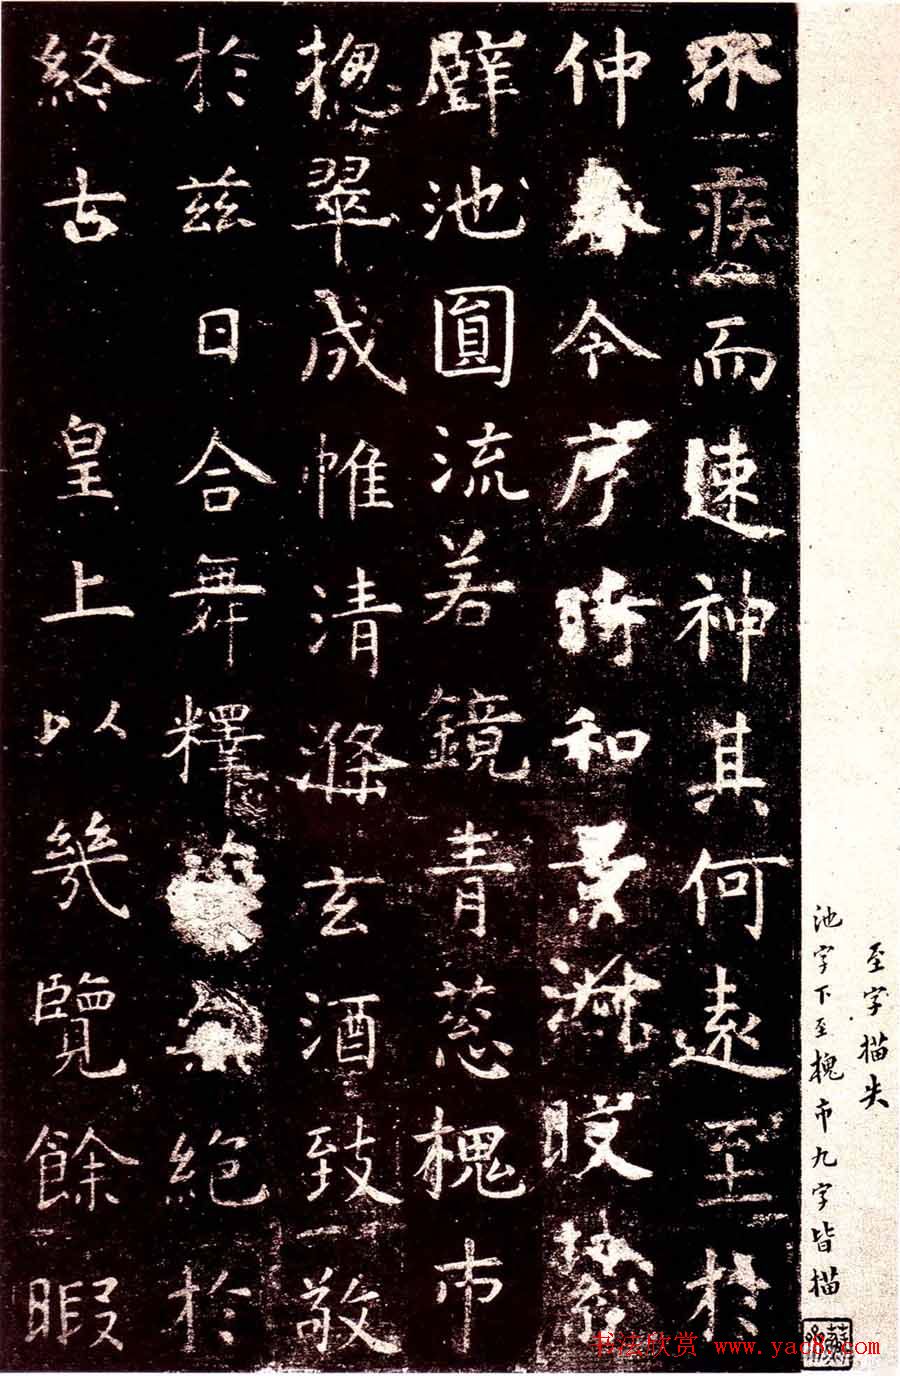 至字描失
池字下至槐市九字皆描
不疾而速神其何遠至於
仲春令序時和景淑晈
璧池圓流若鏡青葱槐市
揔翠成帷清滌玄酒致敬
於茲日合舞釋絕於
終古 皇上以幾覽餘暇
书法欣赏 www.yac8.com